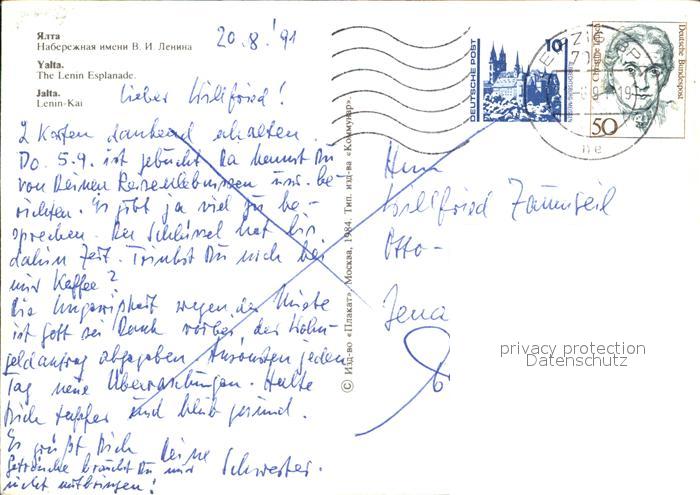 Ялта
Набережная имени В. И. Ленина
Yalta.
The Lenin Esplanade.
Jalta.
Lenin-Kai
20.8.'91
Lieber Willfried!
2 Karten dankend erhalten.
Do. 5.9. ist gebucht. Da kannst Du
von Deinen Reiseerlebnissen usw. be-
richten. Es gibt ja viel zu be-
sprechen. Der Schlüssel hat bis
dahin Zeit. Trinkst Du noch bei
mir Kaffee?
Die Ungewißheit wegen der Miete
ist Gott sei Dank vorbei, der Wohn-
geldantrag abgegeben. Ansonsten jeden
Tag neue Überraschungen. Halte
Dich tapfer und bleib gesund.
Es grüßt Dich Deine
Schwester.
Getränke brauchst Du mir
nicht mitbringen!
© Изд-во «Плакат». Москва, 1984. Тип. изд-ва «Коммунар».
DEUTSCHE POST
10
Deutsche Bundespost
50
LEIPZIG BP
Herrn
Willfried
Otto-
Jena
privacy protection
Datenschutz